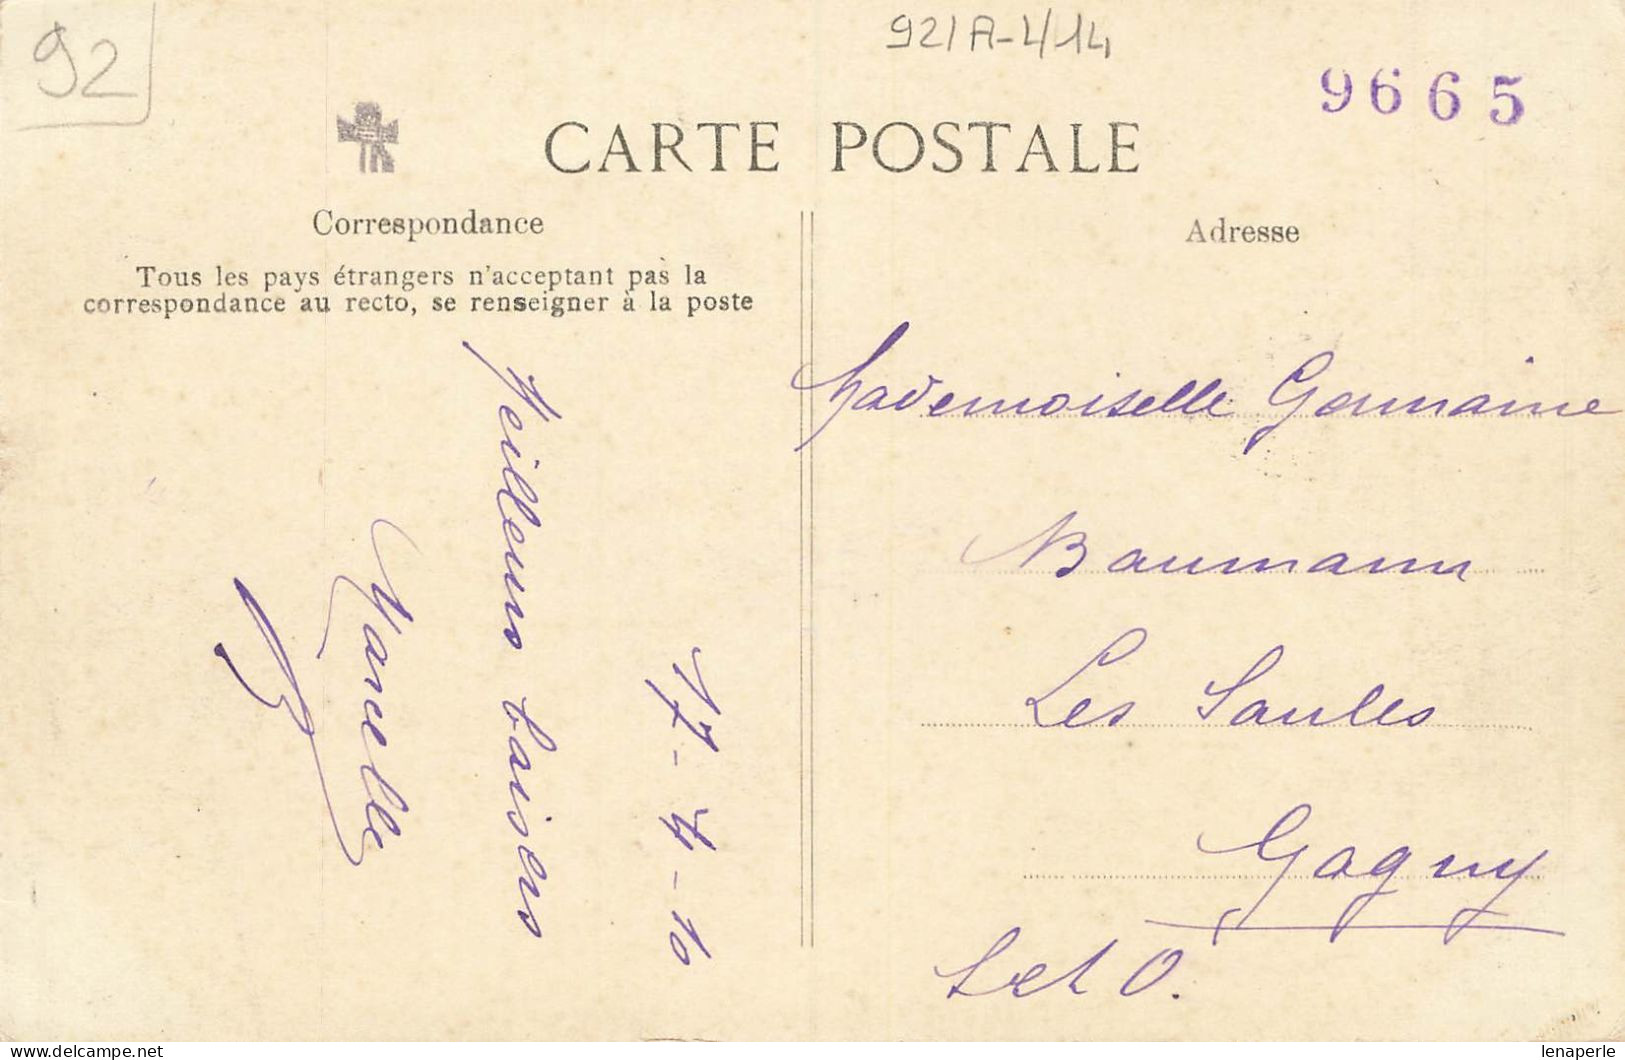 92
92/A-4/14
9665
CARTE POSTALE
Correspondance
Tous les pays étrangers n'acceptant pas la
correspondance au recto, se renseigner à la poste
17-4-10
Meilleurs baisers
Marcelle
Adresse
Mademoiselle Germaine
Baumann
Les Saules
Gagny
S et O.
lenaperle